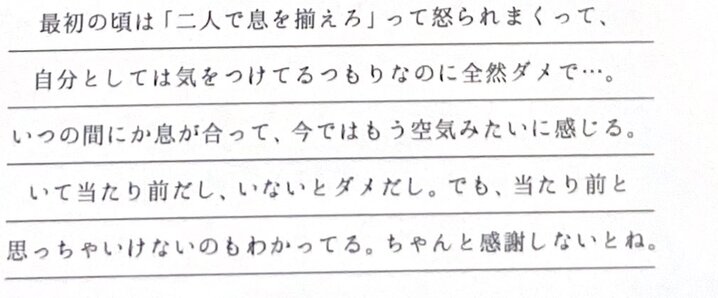 最初の頃は「二人で息を揃えろ」って怒られまくって、
自分としては気をつけてるつもりなのに全然ダメで…。
いつの間にか息が合って、今ではもう空気みたいに感じる。
いて当たり前だし、いないとダメだし。でも、当たり前と
思っちゃいけないのもわかってる。ちゃんと感謝しないとね。